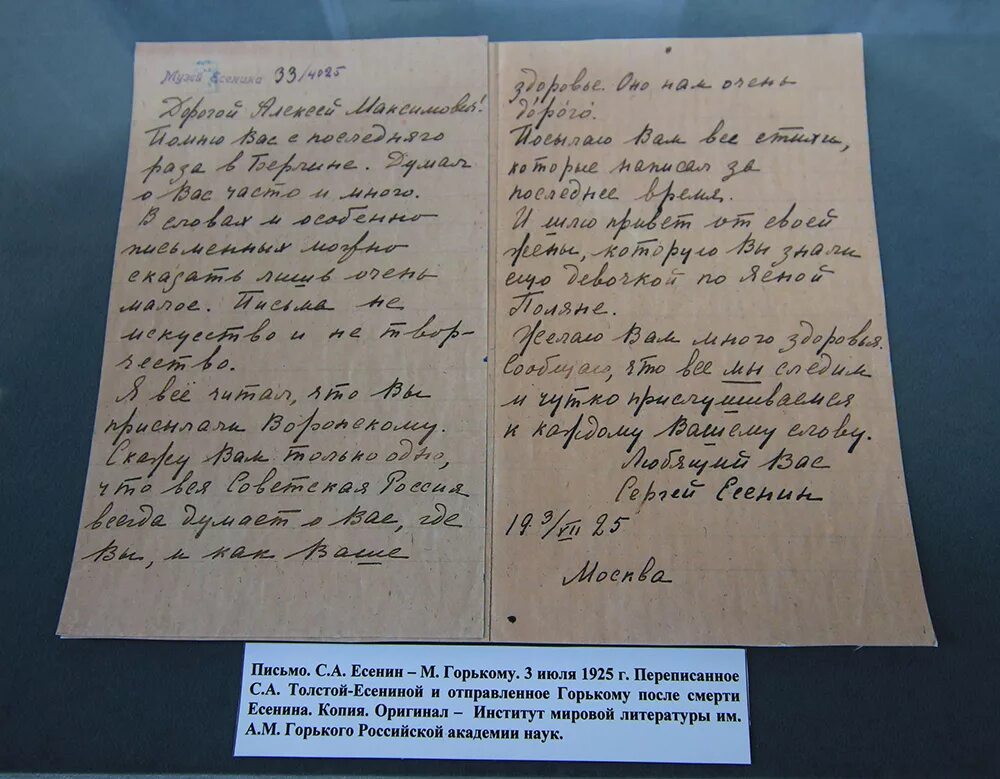 Музей Есенина 33/4025
Дорогой Алексей Максимович!
Помню Вас с последнего
раза в Берлине. Думал
о Вас часто и много.
В словах и особенно
письменных можно
сказать лишь очень
малое. Письма не
искусство и не твор-
чество.
Я всё читал, что Вы
присылали Воронскому.
Скажу Вам только одно,
что вся Советская Россия
всегда думает о Вас, где
Вы, и как Ваше
здоровье. Оно нам очень
дорого.
Посылаю Вам все стихи,
которые написал за
последнее время.
И шлю привет от своей
жены, которую Вы знали
ещо девочкой по Ясной
Поляне.
Желаю Вам много здоровья.
Сообщаю, что все мы следим
и чутко прислушиваемся
к каждому Вашему слову.
Любящий Вас
Сергей Есенин
19 3/VII 25
Москва
Письмо. С.А. Есенин – М. Горькому. 3 июля 1925 г. Переписанное
С.А. Толстой-Есениной и отправленное Горькому после смерти
Есенина. Копия. Оригинал – Институт мировой литературы им.
А.М. Горького Российской академии наук.